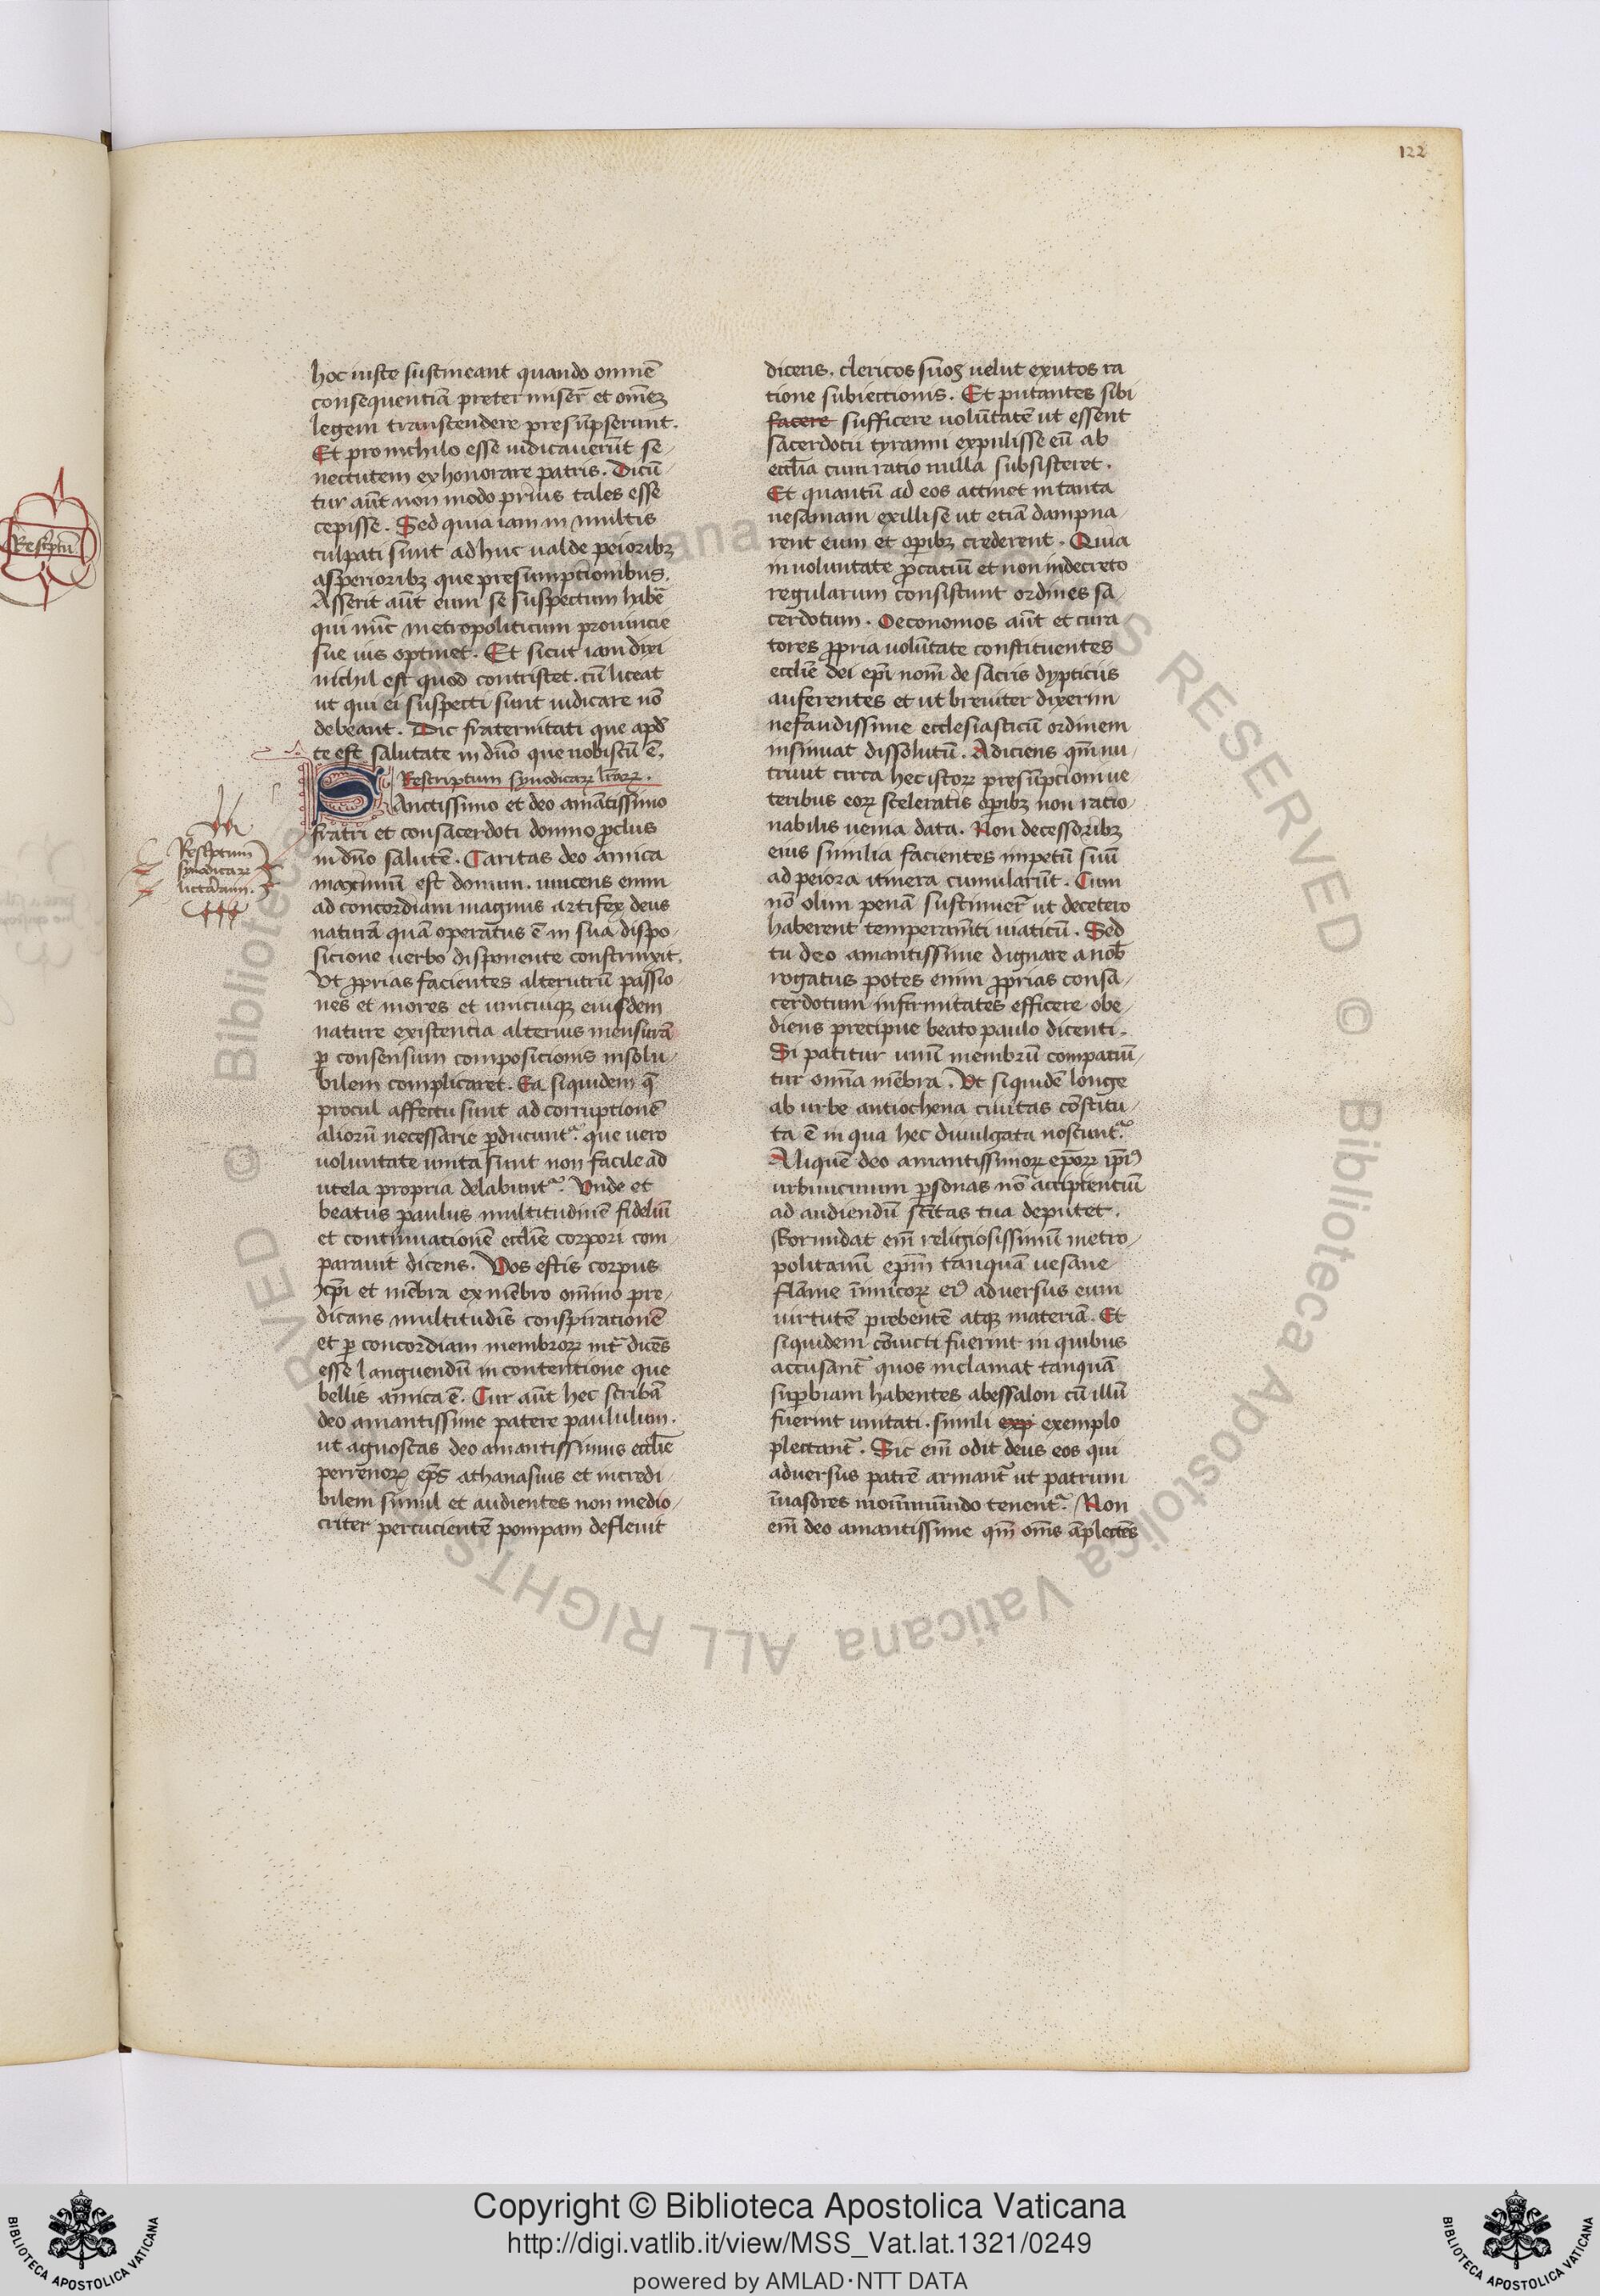 122
hoc iuste sustineant quando omnē
consequentiā preter miser̄ et om̄ēz
legem transcendere presūpserunt.
Et pro nichilo esse iudicauerūt se-
nectutem exhonorare patris. Dicū-
tur aūt non modo prius tales esse
cepisse. Sed quia iam in multis
culpati sunt adhuc ualde peioribꝫ
asperioribꝫ que presumptionibus.
Asserit aūt eum se suspectum habē
qui nūc metropoliticum prouincie
sue ius optinet. Et sicut iam dixi
nichil est quod contristet. cū liceat
ut qui ei suspecti sunt iudicare nō
debeant. Dic fraternitati que apd̄
te est salutate in dn̄o que nobiscū ē.
Rescriptum synodicaꝝ lr̄aꝝ.
SAnctissimo et deo amātissimo
fratri et consacerdoti domno ꝓclus
in dn̄o salutē. Caritas deo amica
maximū est donum. uincens enim
ad concordiam magnus artifex deus
naturā quā operatus ē in sua dispo-
sicione uerbo disponente constrinxit.
Vt ꝓprias facientes alterutrū passio-
nes et mores et unicuiqꝫ eiusdem
nature existencia alterius mensurā
ꝑ consensum composicionis insolu-
bilem complicaret. Ea siquidem q̄
procul affectu sunt ad corruptionē
aliorū necessarie ꝑducunt᷑. que uero
uoluntate unita sunt non facile ad
utela propria delabunt᷑. Vnde et
beatus paulus multitudinē fideliū
et continuationē eccl̄ie corpori com-
parauit dicens. Vos estis corpus
xp̄i et mēbra ex mēbro om̄ino pre-
dicans multitudis̄ conspirationē
et ꝑ concordiam membroꝝ int᷑ dicēs
esse languendū in contentione que
bellis amica ē. Cur aūt hec scribā
deo amantissime patere paululum.
ut agnoscas deo amantissimus eccl̄ie
perrenoꝝ ep̄s athanasius et incredi-
bilem simul et audientes non medio-
criter percucientē pompam defleuit
Resc̄ptum
synodicaꝝ
litterarum.
Resc̄ptū
dicens. clericos suos uelut exutos ra
tione subiectionis. Et putantes sibi
facere sufficere uolūtatē ut essent
sacerdotū tyranni expulisse eū ab
eccl̄ia cum ratio nulla subsisteret.
Et quantū ad eos attinet in tanta
uesaniam exillise ut etiā dampna-
rent eum et oꝑibꝫ crederent. Quia
in uoluntate ꝓcatiū et non indecreto
regularum consistunt ordines sa-
cerdotum. Oeconomos aūt et cura
tores ꝓpria uolūtate constituentes
eccl̄ie dei ep̄i nom̄ de sacris dypticiis
auferentes et ut breuiter dixerim
nefandissime ecclesiasticū ordinem
insinuat dissolutū. Adiciens qm̄ nu-
triuit circa hec istoꝝ presūptioni ue
teribus eoꝝ sceleratis oꝑibꝫ non ratio-
nabilis uenia data. Non decessoribꝫ
eius similia facientes impetū suū
ad peiora itinera cumularūt. Cum
nō olim penā sustinuer̄ ut decetero
haberent temperam̄ti uiaticū. Sed
tu deo amantissime dignare a nob̄
rogatus potes enim ꝓprias consa-
cerdotum infirmitates efficere obe-
diens precipue beato paulo dicenti.
Si patitur unū membrū compatiū-
tur omīa mēbra. Vt siquidē longe
ab urbe antiochena ciuitas cōstitu-
ta ē in qua hec diuulgata noscunt᷑.
Aliquē deo amantissimoꝝ ep̄oꝝ ip̄iꝰ
urbi uicinum ꝑsonas nō accipientiū
ad audiendū sc̄itas tua deputet.
Formidat em̄ religiosissimū metro-
politanū ep̄m tanquā uesane
flāme inimicoꝝ eiꝰ aduersus eum
uirtutē prebentē atqꝫ materiā. Et
siquidem cōuicti fuerint in quibus
accusant᷑ quos inclamat tanquā
suꝑbiam habentes abessalon cū illū
fuerint imitati. simili exp exemplo
plectant᷑. Sic em̄ odit deus eos qui
aduersus patrē armant᷑ ut patrum
īuasores inoīmundo tenent᷑. Non
em̄ deo amantissime qm̄ om̄s āplectēs
Copyright © Biblioteca Apostolica Vaticana
http://digi.vatlib.it/view/MSS_Vat.lat.1321/0249
powered by AMLAD·NTT DATA
BIBLIOTECA APOSTOLICA VATICANA
BIBLIOTECA APOSTOLICA VATICANA